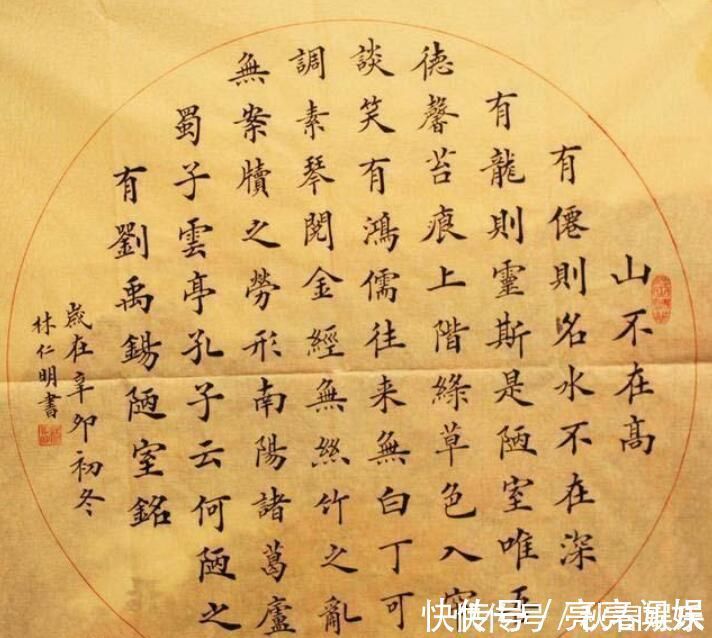 山不在高
有僊則名水不在深
有龍則靈斯是陋室唯吾
德馨苔痕上階綠草色入
談笑有鴻儒往来無白丁可
調素琴閱金經無絲竹之亂
無案牘之勞形南陽諸葛廬
蜀子雲亭孔子云何陋之
有劉禹錫陋室銘
歲在辛卯初冬
林仁明書